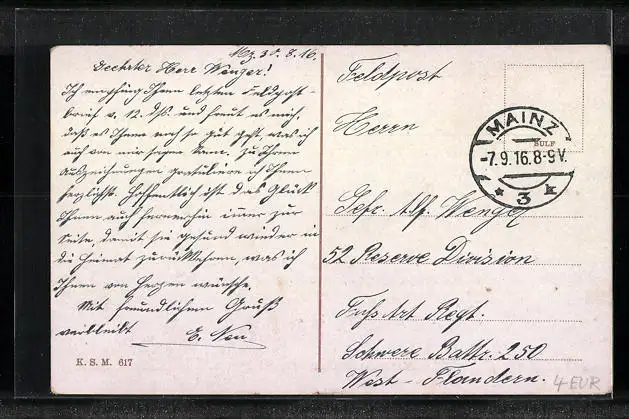 Mz. 30.8.16.
Geehrter Herr Wenger!
Ich empfing Ihren letzten Feldpost-
brief v. 12. dss. und freut es mich,
daß es Ihnen noch so gut geht, was ich
auch von mir sagen kann. Zu Ihren
Auszeichnungen gratuliere ich Ihnen
herzlichst. Hoffentlich ist das Glück
Ihnen auch fernerhin immer zur
Seite, damit sie gesund wieder in
die Heimat zurückkehren, was ich
Ihnen von Herzen wünsche.
Mit freundlichem Gruß
verbleibt E. Neu
K. S. M. 617
Feldpost
Herrn
MAINZ
-7.9.16.8-9V.
* 3 k
Gefr. Alf. Wenger
52 Reserve Division
Fuss Art Regt.
Schwere Battr. 250
West-Flandern.
4 EUR